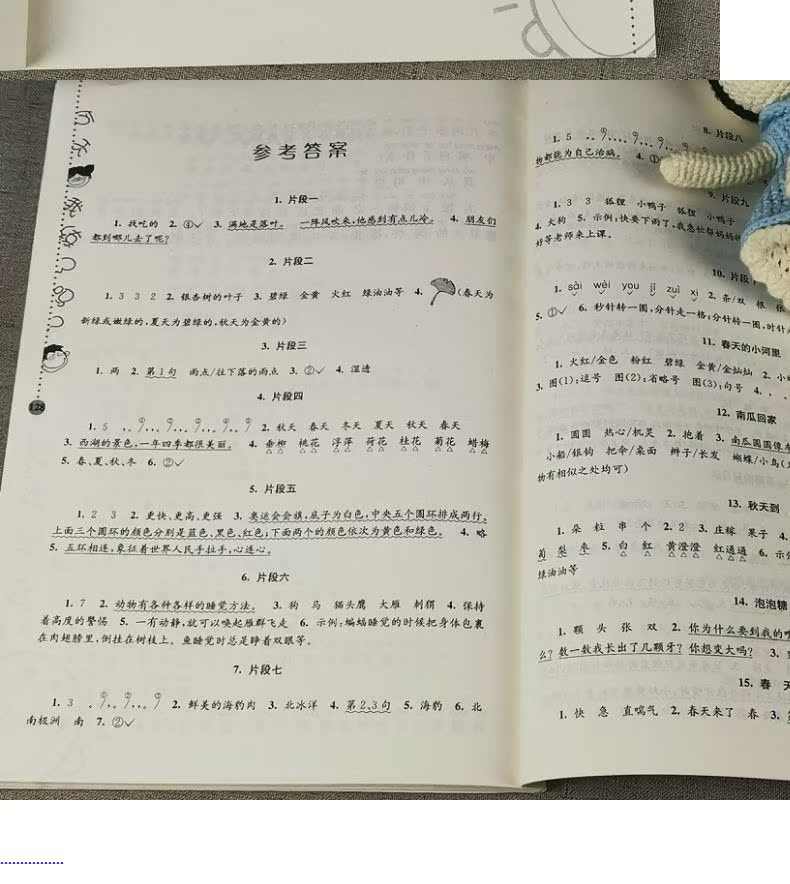 参考答案
1. 片段一
1. 找吃的 2. ④✓ 3. 满地是落叶。 一阵风吹来,他感到有点儿冷。 4. 朋友们
都到哪儿去了呢?
2. 片段二
1. 3 3 2 2. 银杏树的叶子 3. 碧绿 金黄 火红 绿油油等 4. (春天为
新绿或嫩绿的,夏天为碧绿的,秋天为金黄的)
3. 片段三
1. 两 2. 第1句 雨点/往下落的雨点 3. ②✓ 4. 湿透
4. 片段四
1. 5 2. 秋天 春天 冬天 夏天 秋天 春天
3. 西湖的景色,一年四季都很美丽。 4. 垂柳 桃花 浮萍 荷花 桂花 菊花 蜡梅
5. 春、夏、秋、冬 6. ②✓
5. 片段五
1. 2 3 2. 更快、更高、更强 3. 奥运会会旗,底子为白色,中央五个圆环排成两行。
上面三个圆环的颜色分别是蓝色、黑色、红色;下面两个的颜色依次为黄色和绿色。 4. 略
5. 五环相连,象征着世界人民手拉手,心连心。
6. 片段六
1. 7 2. 动物有各种各样的睡觉方法。 3. 狗 马 猫头鹰 大雁 刺猬 4. 保持
着高度的警惕 5. 一有动静,就可以唤起雁群飞走 6. 示例:蝙蝠睡觉的时候把身体包裹
在肉翅膀里,倒挂在树枝上。鱼睡觉时总是睁着双眼等。
7. 片段七
1. 3 2. 鲜美的海豹肉 3. 北冰洋 4. 第2、3句 5. 海豹 6. 北
南极洲 南 7. ②✓
128
8. 片段八
1. 5
物都能为自己治病。 4. ①
9. 片段九
1. 3 3 狐狸 小鸭子 狐狸 小鸭子
4. 大狗 5. 示例:快要下雨了,我急忙帮妈妈
好等老师来上课。
10. 片段
1. sài wèi you jī zuì xi 2. 条/双 根 张
5. ①✓ 6. 秒针转一圈,分针走一格;分针转一圈,时针
11. 春天的小河里
1. 火红/金色 粉红 碧绿 金黄/金灿灿 2. 小
3. 图(1):逗号 图(2):省略号 图(3):句号 4. , 。
12. 南瓜回家
1. 圆圆 热心/机灵 2. 抱着 3. 南瓜圆圆像
小船/银钩 把伞/桌面 辫子/长发 蝴蝶/小鸟
物有相似之处均可)
13. 秋天到
1. 朵 粒 串 个 2. 2 3. 庄稼 果子 4.
萄 梨 枣 5. 白 红 黄澄澄 红通通 6. 示
绿油油等
14. 泡泡糖
1. 颗 头 张 双 2. 你为什么要到我的
么? 数一数我长出了几颗牙? 你想变大吗? 3.
15. 春 天
1. 快 急 直喘气 2. 春天来了 春 3.